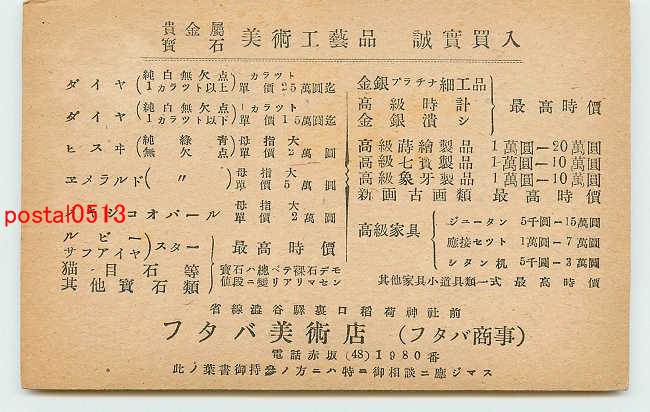 貴金屬
寶石 美術工藝品 誠實買入
ダイヤ(純白無欠点 1カラツト以上) 一カラツト 單價25萬圓迄
ダイヤ(純白無欠点 1カラツト以下) 一カラツト 單價15萬圓迄
ヒスヰ(純綠青 無欠点) 母指大 單價2萬圓
エメラルド(〃) 母指大 單價5萬圓
コオパール 母指大 單價2萬圓
ルビー サフアイヤ)スター 最高時價
猫目石等
其他寶石類 寶石ハ總ベテ裸石デモ
値段ニ變リアリマセン
金銀プラチナ細工品
高級時計
金銀潰シ
最高時價
高級蒔繪製品 1萬圓ー20萬圓
高級七寶製品 1萬圓ー10萬圓
高級象牙製品 1萬圓ー10萬圓
新画古画類 最高時價
高級家具
ジニータン 5千圓ー15萬圓
應接セツト 1萬圓ー7萬圓
シタン机 5千圓ー3萬圓
其他家具小道具類一式 最高時價
省線澁谷驛裏口稻荷神社前
フタバ美術店 (フタバ商事)
電話赤坂(48)1980番
此ノ葉書御持參ノ方ニハ特ニ御相談ニ應ジマス
postal0513